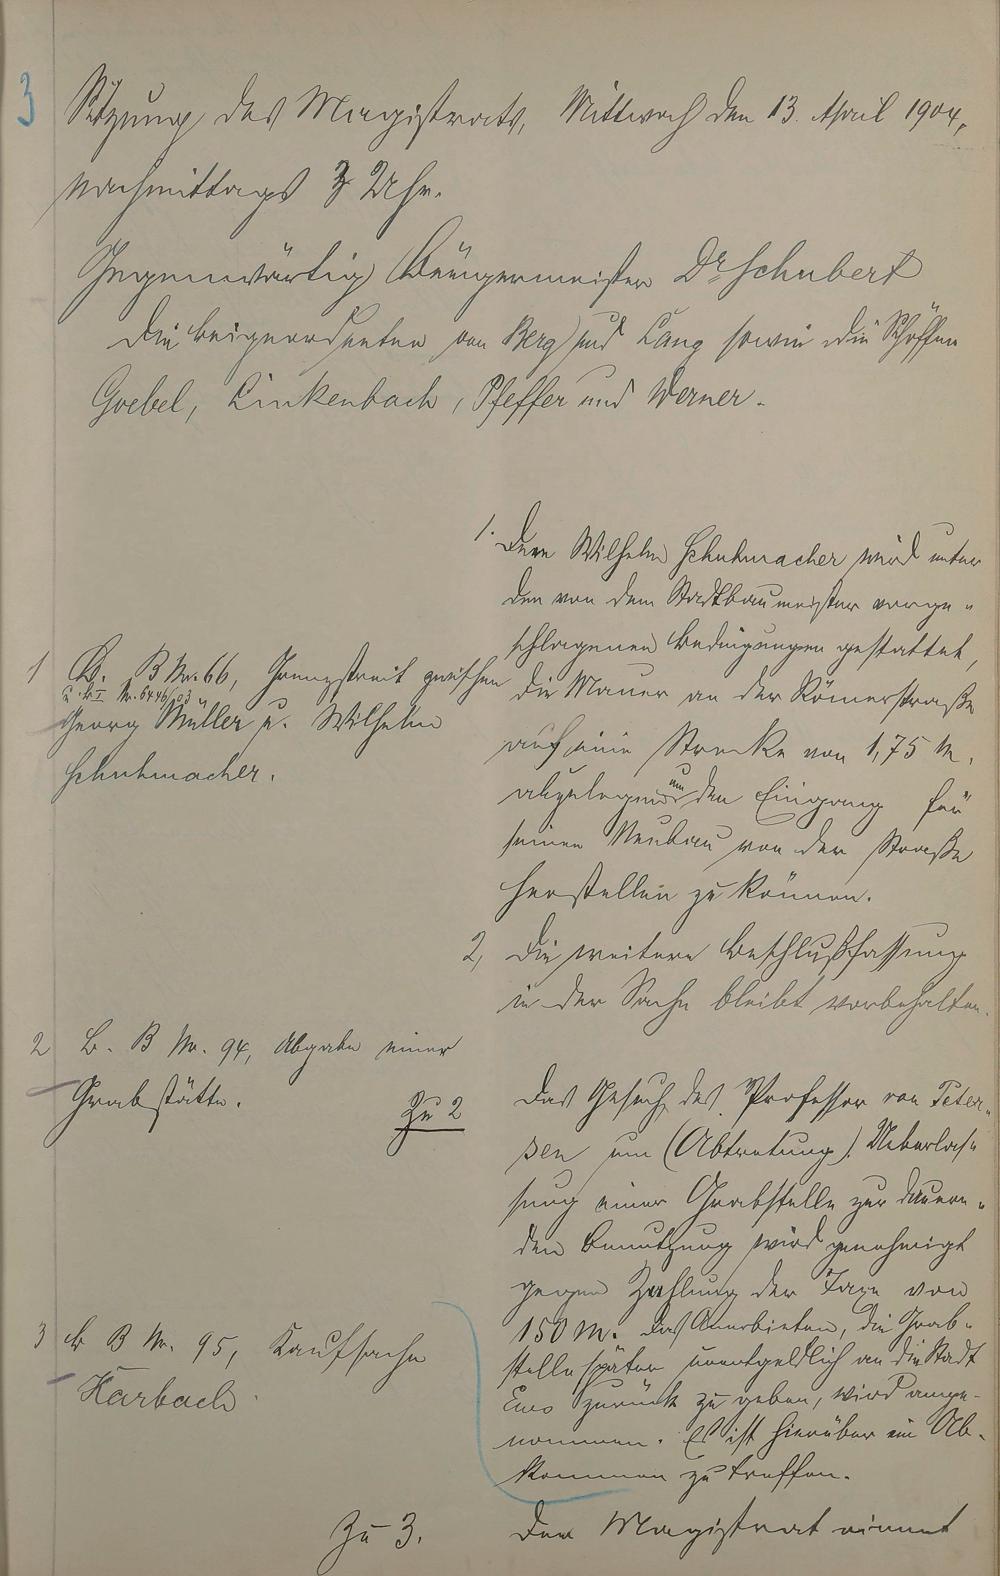 3
Sitzung des Magistrats, Mittwoch den 13. April 1904,
nachmittags 3 Uhr.
Gegenwärtig Bürgermeister Dr Schubert
die Beigeordneten von Berg und Lang sowie die Schöffen
Goebel, Linkenbach, Pfeffer und Werner.
1 B. B Nr. 66, Grenzstreit zwischen
u. Nr. 6446/03
Georg Müller u. Wilhelm
Schuhmacher.
1. Dem Wilhelm Schuhmacher wird unter
den von dem Stadtbaumeister vorge-
schlagenen Bedingungen gestattet,
die Mauer an der Römerstraße
auf eine Strecke von 1,75 m.
abzulegen um den Eingang für
seinen Neubau von der Straße
herstellen zu können.
2, Die weitere Beschlußfassung
in der Sache bleibt vorbehalten.
2 B. B Nr. 94, Abgabe einer
Grabstätte.
Zu 2
Das Gesuch des Professor von Peter-
sen um (Abtretung) Ueberlas-
sung einer Grabstelle zur dauern-
den Benutzung wird genehmigt
gegen Zahlung der Taxe von
150 M. Das Anerbieten, die Grab-
stelle später unentgeldlich an die Stadt
Ems zurück zu geben, wird ange-
nommen. Es ist hierüber ein Ab-
kommen zu treffen.
3 B B Nr. 95, Kaufsache
Karbach
Zu 3.
Der Magistrat nimmt